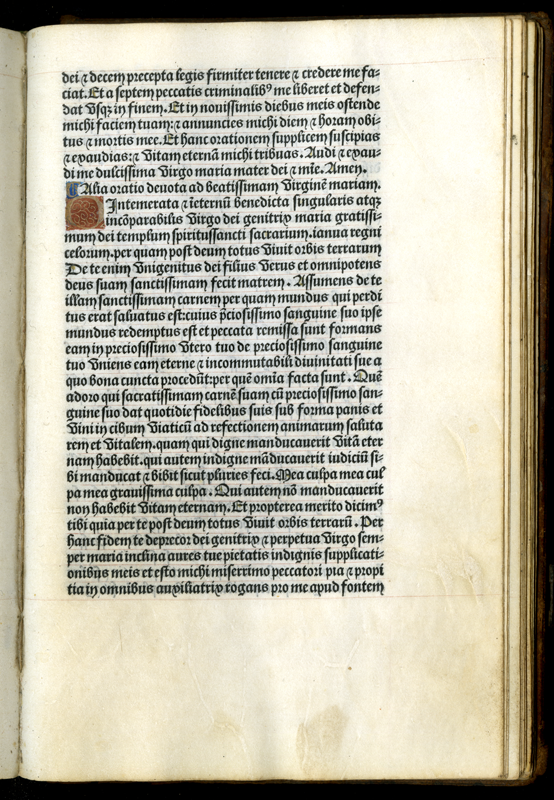 dei ⁊ decem precepta legis firmiter tenere ⁊ credere me fa-
ciat. Et a septem peccatis criminalibꝰ me liberet et defen-
dat vsqꝫ in finem. Et in nouissimis diebus meis ostende
michi faciem tuam: ⁊ annuncies michi diem ⁊ horam obi-
tus ⁊ mortis mee. Et hanc orationem supplicem suscipias
⁊ exaudias: ⁊ vitam eternā michi tribuas. Audi ⁊ exau-
di me dulcissima virgo maria mater dei ⁊ mīe. Amen.
Alia oratio deuota ad beatissimam virginē mariam.
O Intemerata ⁊ ieternū benedicta singularis atqꝫ
incōparabilis virgo dei genitrix maria gratissi-
mum dei templum spiritussancti sacrarium. ianua regni
celorum. per quam post deum totus viuit orbis terrarum
De te enim vnigenitus dei filius verus et omnipotens
deus suam sanctissimam fecit matrem. Assumens de te
illam sanctissimam carnem per quam mundus qui perdi
tus erat saluatus est: cuius p̄ciosissimo sanguine suo ipse
mundus redemptus est et peccata remissa sunt formans
eam in preciosissimo vtero tuo de preciosissimo sanguine
tuo vniens eam eterne ⁊ incommutabili diuinitati sue a
quo bona cuncta procedūt: per quē omīa facta sunt. Quē
adoro qui sacratissimam carnē suam cū preciosissimo san-
guine suo dat quotidie fidelibus suis sub forma panis et
vini in cibum viaticū ad refectionem animarum saluta
rem et vitalem. quam qui digne manducauerit vitā eter
nam habebit. qui autem indigne māducauerit iudiciū si-
bi manducat ⁊ bibit sicut pluries feci. Mea culpa mea cul
pa mea grauissima culpa. Qui autem nō manducauerit
non habebit vitam eternam. Et propterea merito dicimꝰ
tibi quia per te post deum totus viuit orbis terrarū. Per
hanc fidem te deprecor dei genitrix ⁊ perpetua virgo sem-
per maria inclina aures tue pietatis indignis supplicati-
onibus meis et esto michi miserrimo peccatori pia ⁊ propi
tia in omnibus auxiliatrix rogans pro me apud fontem